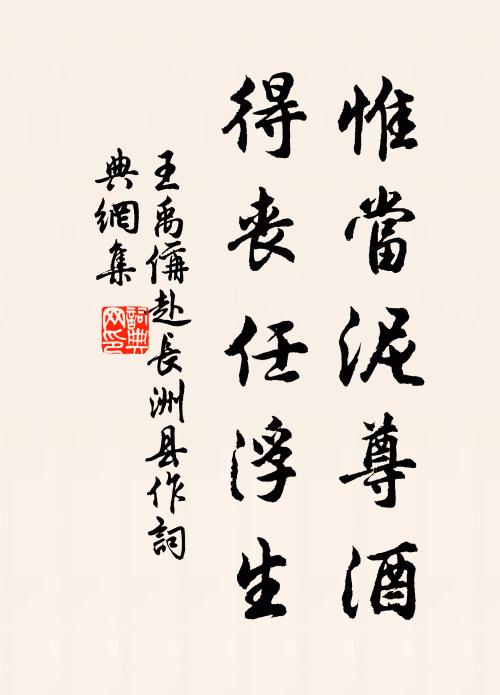 惟當泥尊酒
得喪任浮生
王禹偁赴長洲县作詞
典網集
詞典网印